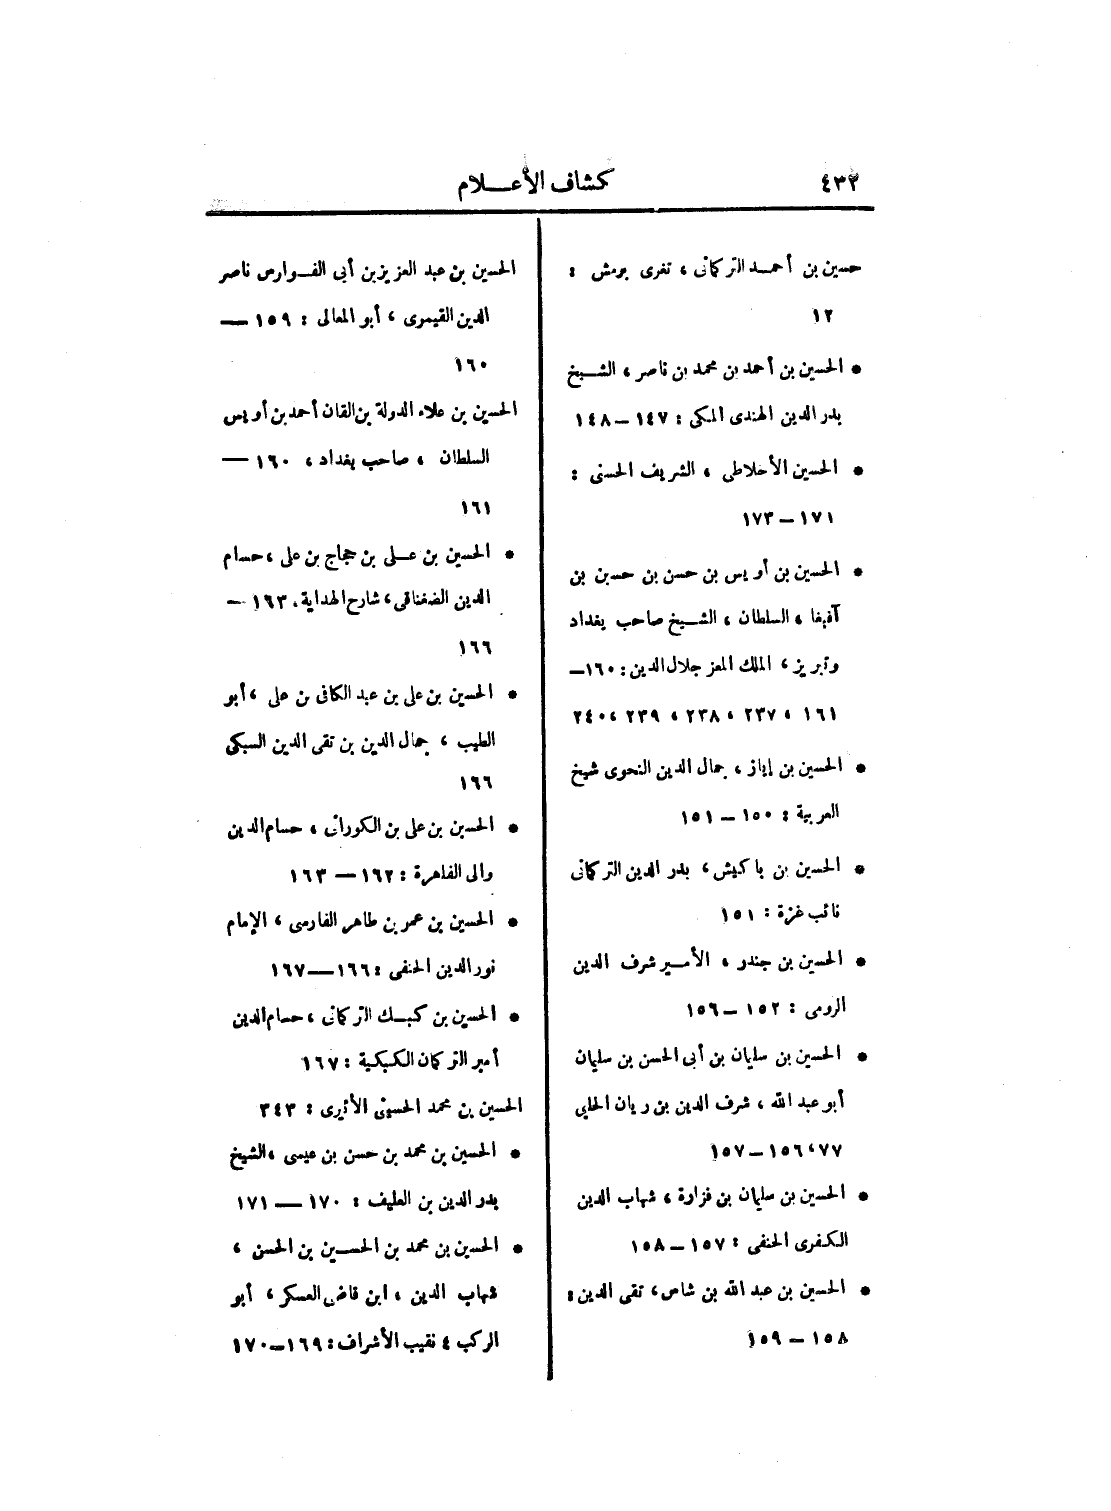 ٤٣٢
كشاف الأعــلام
حسين بن أحمـد التركمانى ، تغرى برمش :
١٢
• الحسين بن أحمد بن محمد بن ناصر ، الشـيخ
بدر الدين الهندى المكى : ١٤٧ – ١٤٨
• الحسين الأخلاطى ، الشريف الحسنى :
١٧١ – ١٧٣
• الحسين بن أويس بن حسن بن حسين بن
آقبغا ، السلطان ، الشـيخ صاحب بغداد
وتبريز ، الملك المعز جلال الدين : ١٦٠–
١٦١ ، ٢٣٧ ، ٢٣٨ ، ٢٣٩ ، ٢٤٠
• الحسين بن إياز ، جمال الدين النحوى شيخ
العربية : ١٥٠ – ١٥١
• الحسين بن باكيش ، بدر الدين التركمانى
نائب غزة : ١٥١
• الحسين بن جندر ، الأمـير شرف الدين
الرومى : ١٥٢ – ١٥٦
• الحسين بن سليمان بن أبى الحسن بن سليمان
أبو عبد الله ، شرف الدين بن ريان الحلبى
٧٧ ، ١٥٦ – ١٥٧
• الحسين بن سليمان بن فزارة ، شهاب الدين
الكفرى الحنفى : ١٥٧ – ١٥٨
• الحسين بن عبد الله بن شاس ، تقى الدين :
١٥٨ – ١٥٩
الحسين بن عبد العزيز بن أبى الفـوارس ناصر
الدين القيمرى ، أبو المعالى : ١٥٩ —
١٦٠
الحسين بن علاء الدولة بن القان أحمد بن أويس
السلطان ، صاحب بغداد ، ١٦٠ —
١٦١
• الحسين بن عـلى بن حجاج بن على ، حسام
الدين الضغناقى ، شارح الهداية . ١٦٣ –
١٦٦
• الحسين بن على بن عبد الكافى بن على ، أبو
الطيب ، جمال الدين بن تقى الدين السبكى
١٦٦
• الحسين بن على بن الكورانى ، حسام الدين
والى القاهرة : ١٦٢ – ١٦٣
• الحسين بن عمر بن طاهر الفارسى ، الإمام
نور الدين الحنفى : ١٦٦ — ١٦٧
• الحسين بن كبـك التركمانى ، حسام الدين
أمير التركمان الكبكية : ١٦٧
الحسين بن محمد الحسينى الأثيرى : ٣٤٣
• الحسين بن محمد بن حسن بن عيسى ، الشيخ
بدر الدين بن العليف : ١٧٠ — ١٧١
• الحسين بن محمد بن الحسـين بن الحسن ،
شهاب الدين ، ابن قاضى العسكر ، أبو
الركب ، نقيب الأشراف : ١٦٩ – ١٧٠